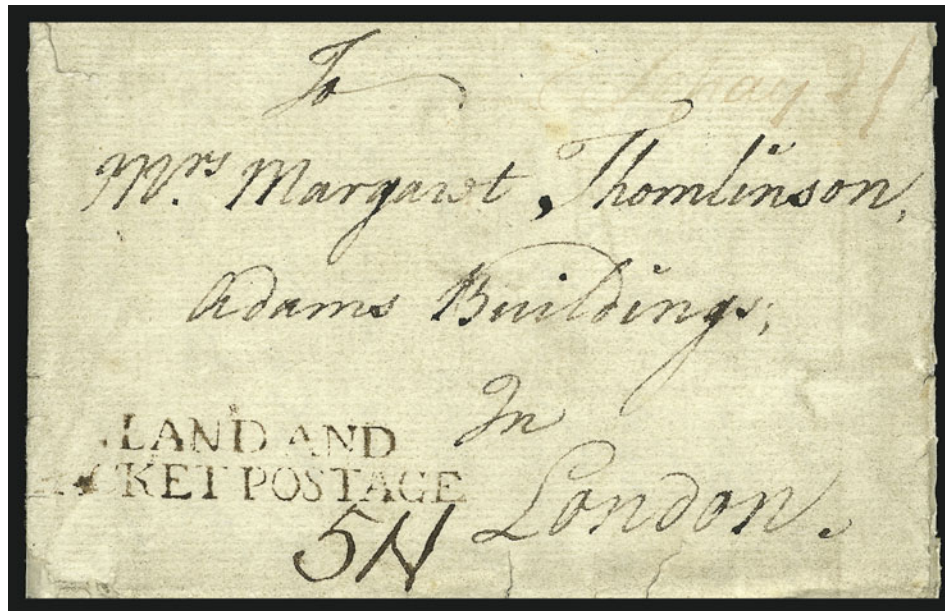 To
Mrs. Margaret Thomlinson,
Adams Buildings,
In
London.
LAND AND
ACKET POSTAGE
5N